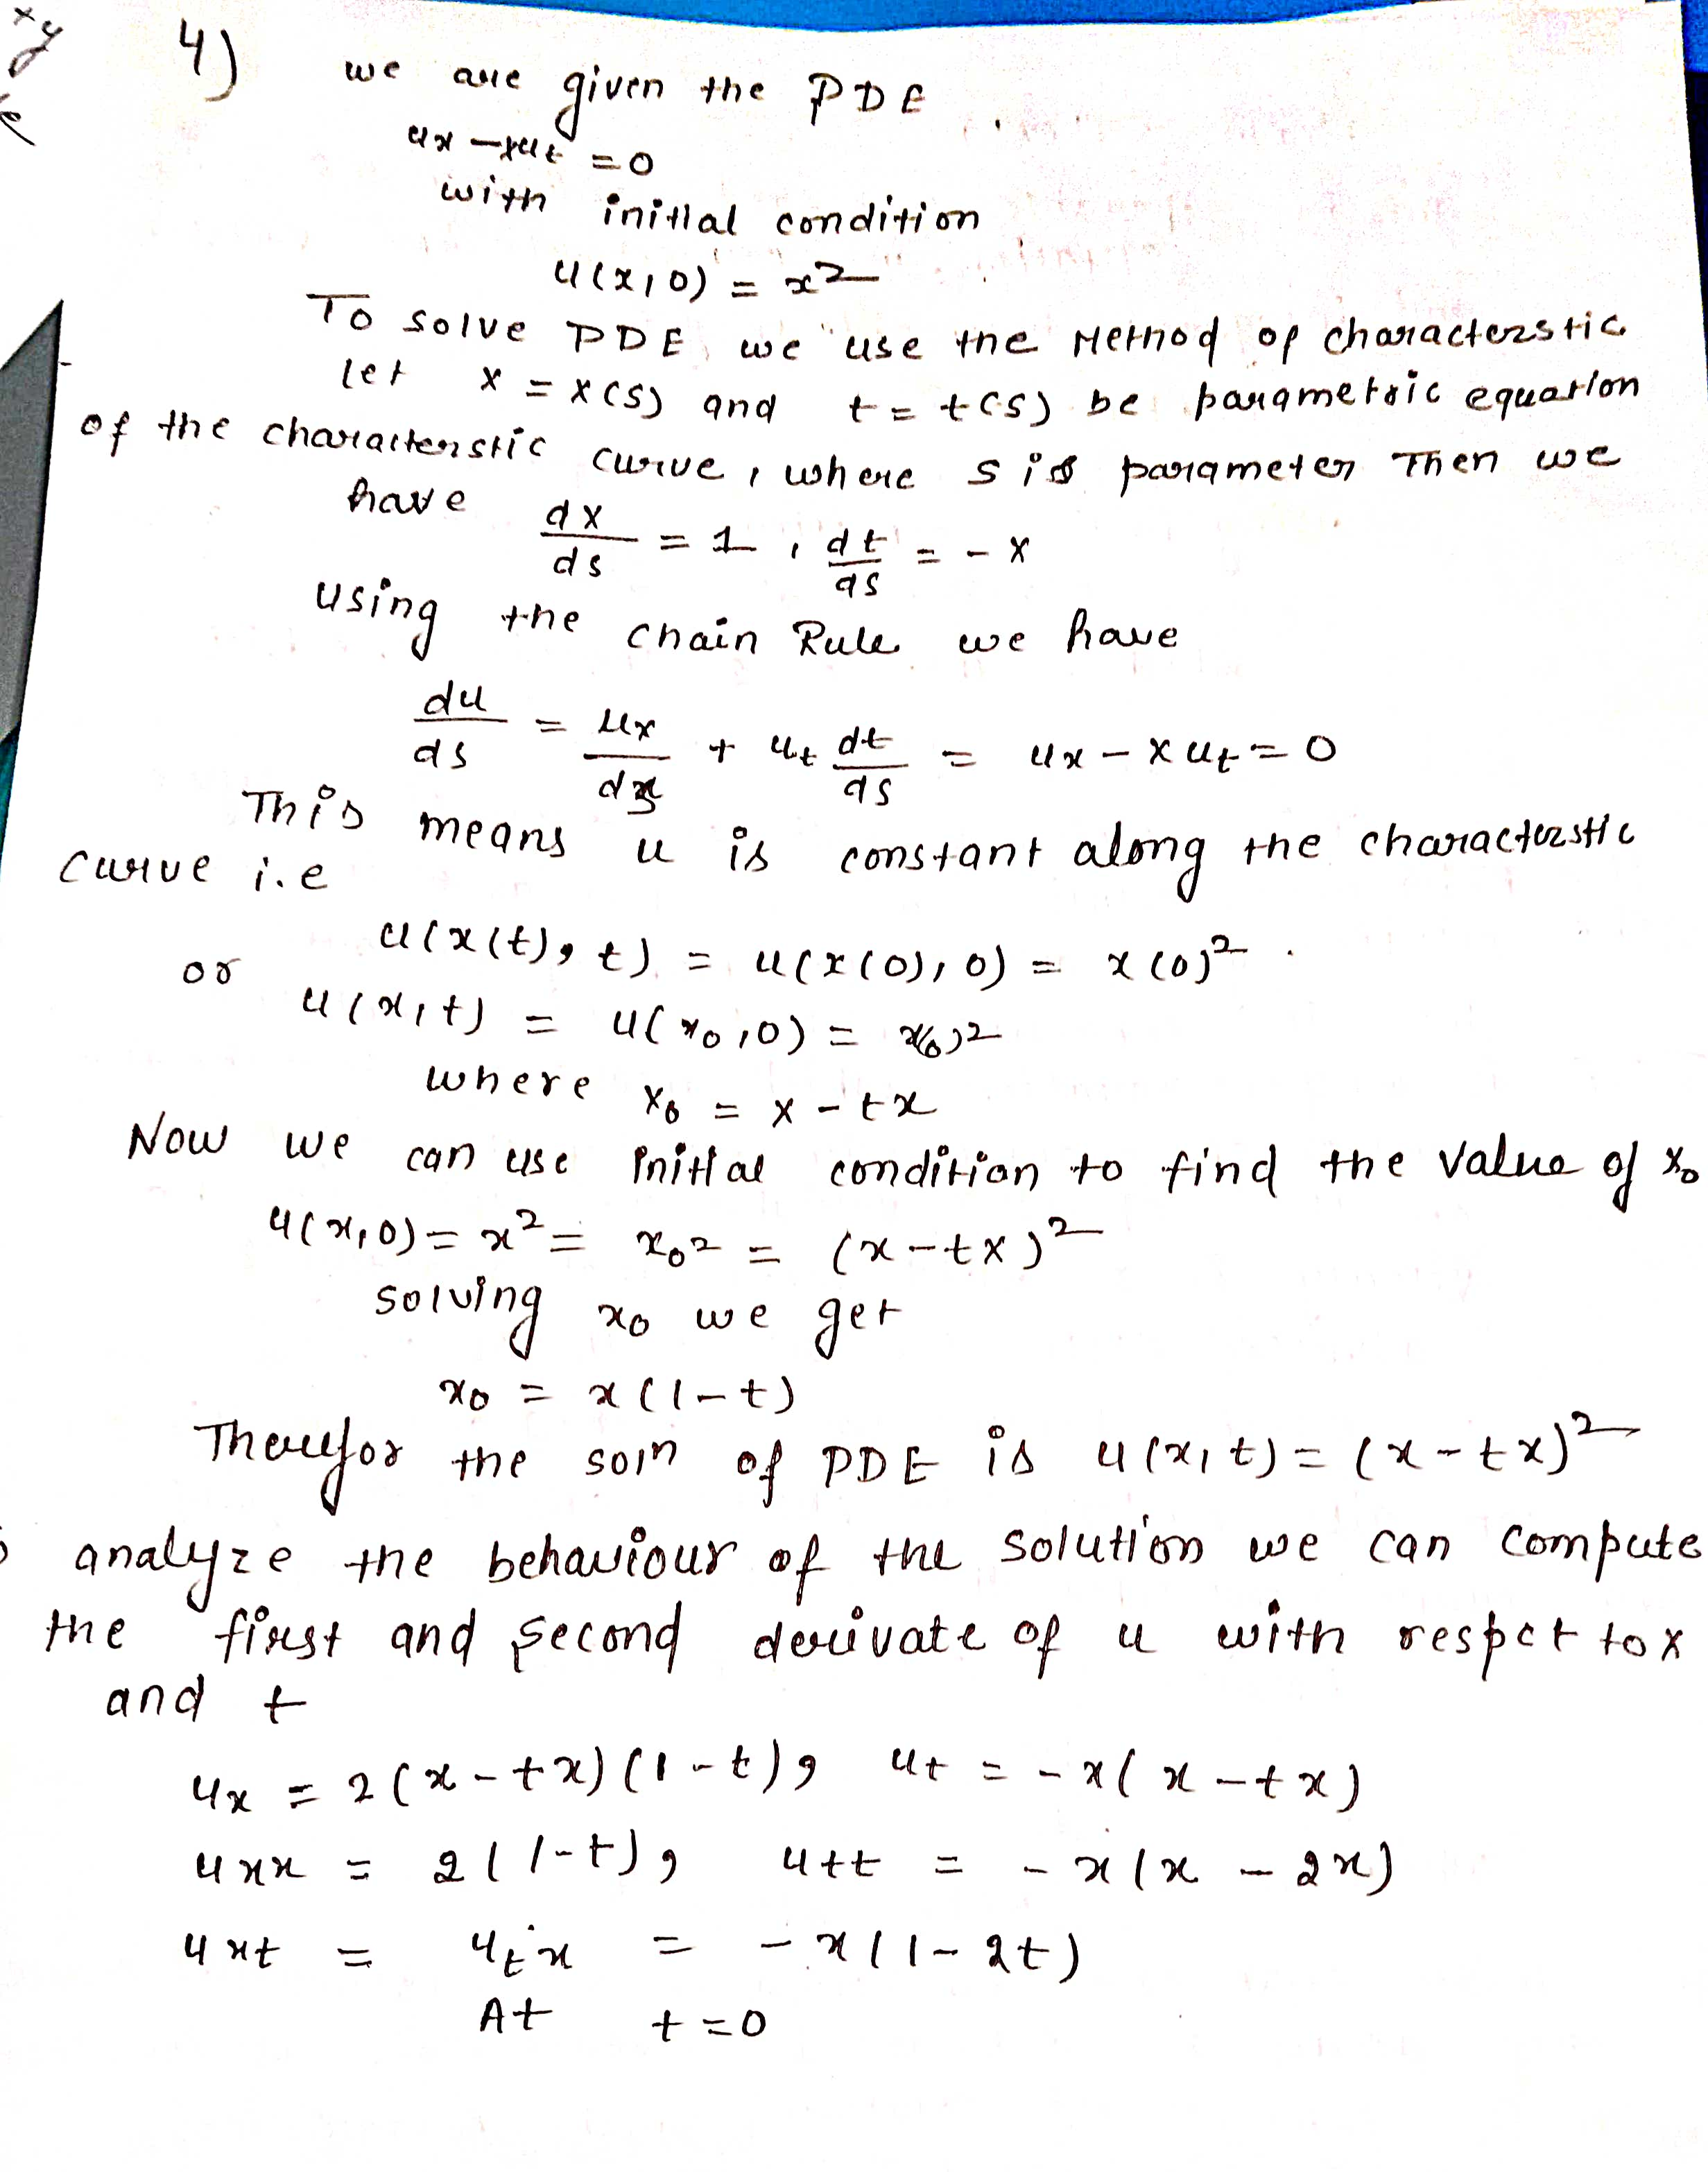 xy
4) we are given the PDE
ux - xut = 0
with initial condition
u(x,0) = x²
To solve PDE we use the Method of characterstic
let x = x(s) and t = t(s) be parametric equation
of the characterstic curve, where s is parameter Then we
have dx/ds = 1, dt/ds = - x
using the chain Rule we have
du/ds = ux/dx + ut dt/ds = ux - x ut = 0
This means u is constant along the characterstic
curve i.e
u(x(t), t) = u(x(0), 0) = x(0)².
or u(x,t) = u(x0,0) = x0)²
where x0 = x - tx
Now we can use initial condition to find the value of x0
u(x,0) = x² = x0² = (x - tx)²
solving x0 we get
x0 = x(1-t)
Therefor the soln of PDE is u(x,t) = (x - tx)²
analyze the behaviour of the solution we can compute
the first and second derivate of u with respct to x
and t
ux = 2(x - tx)(1 - t), ut = - x(x - tx)
uxx = 2(1-t), utt = - x(x - 2x)
uxt = utx = - x(1 - 2t)
At t = 0